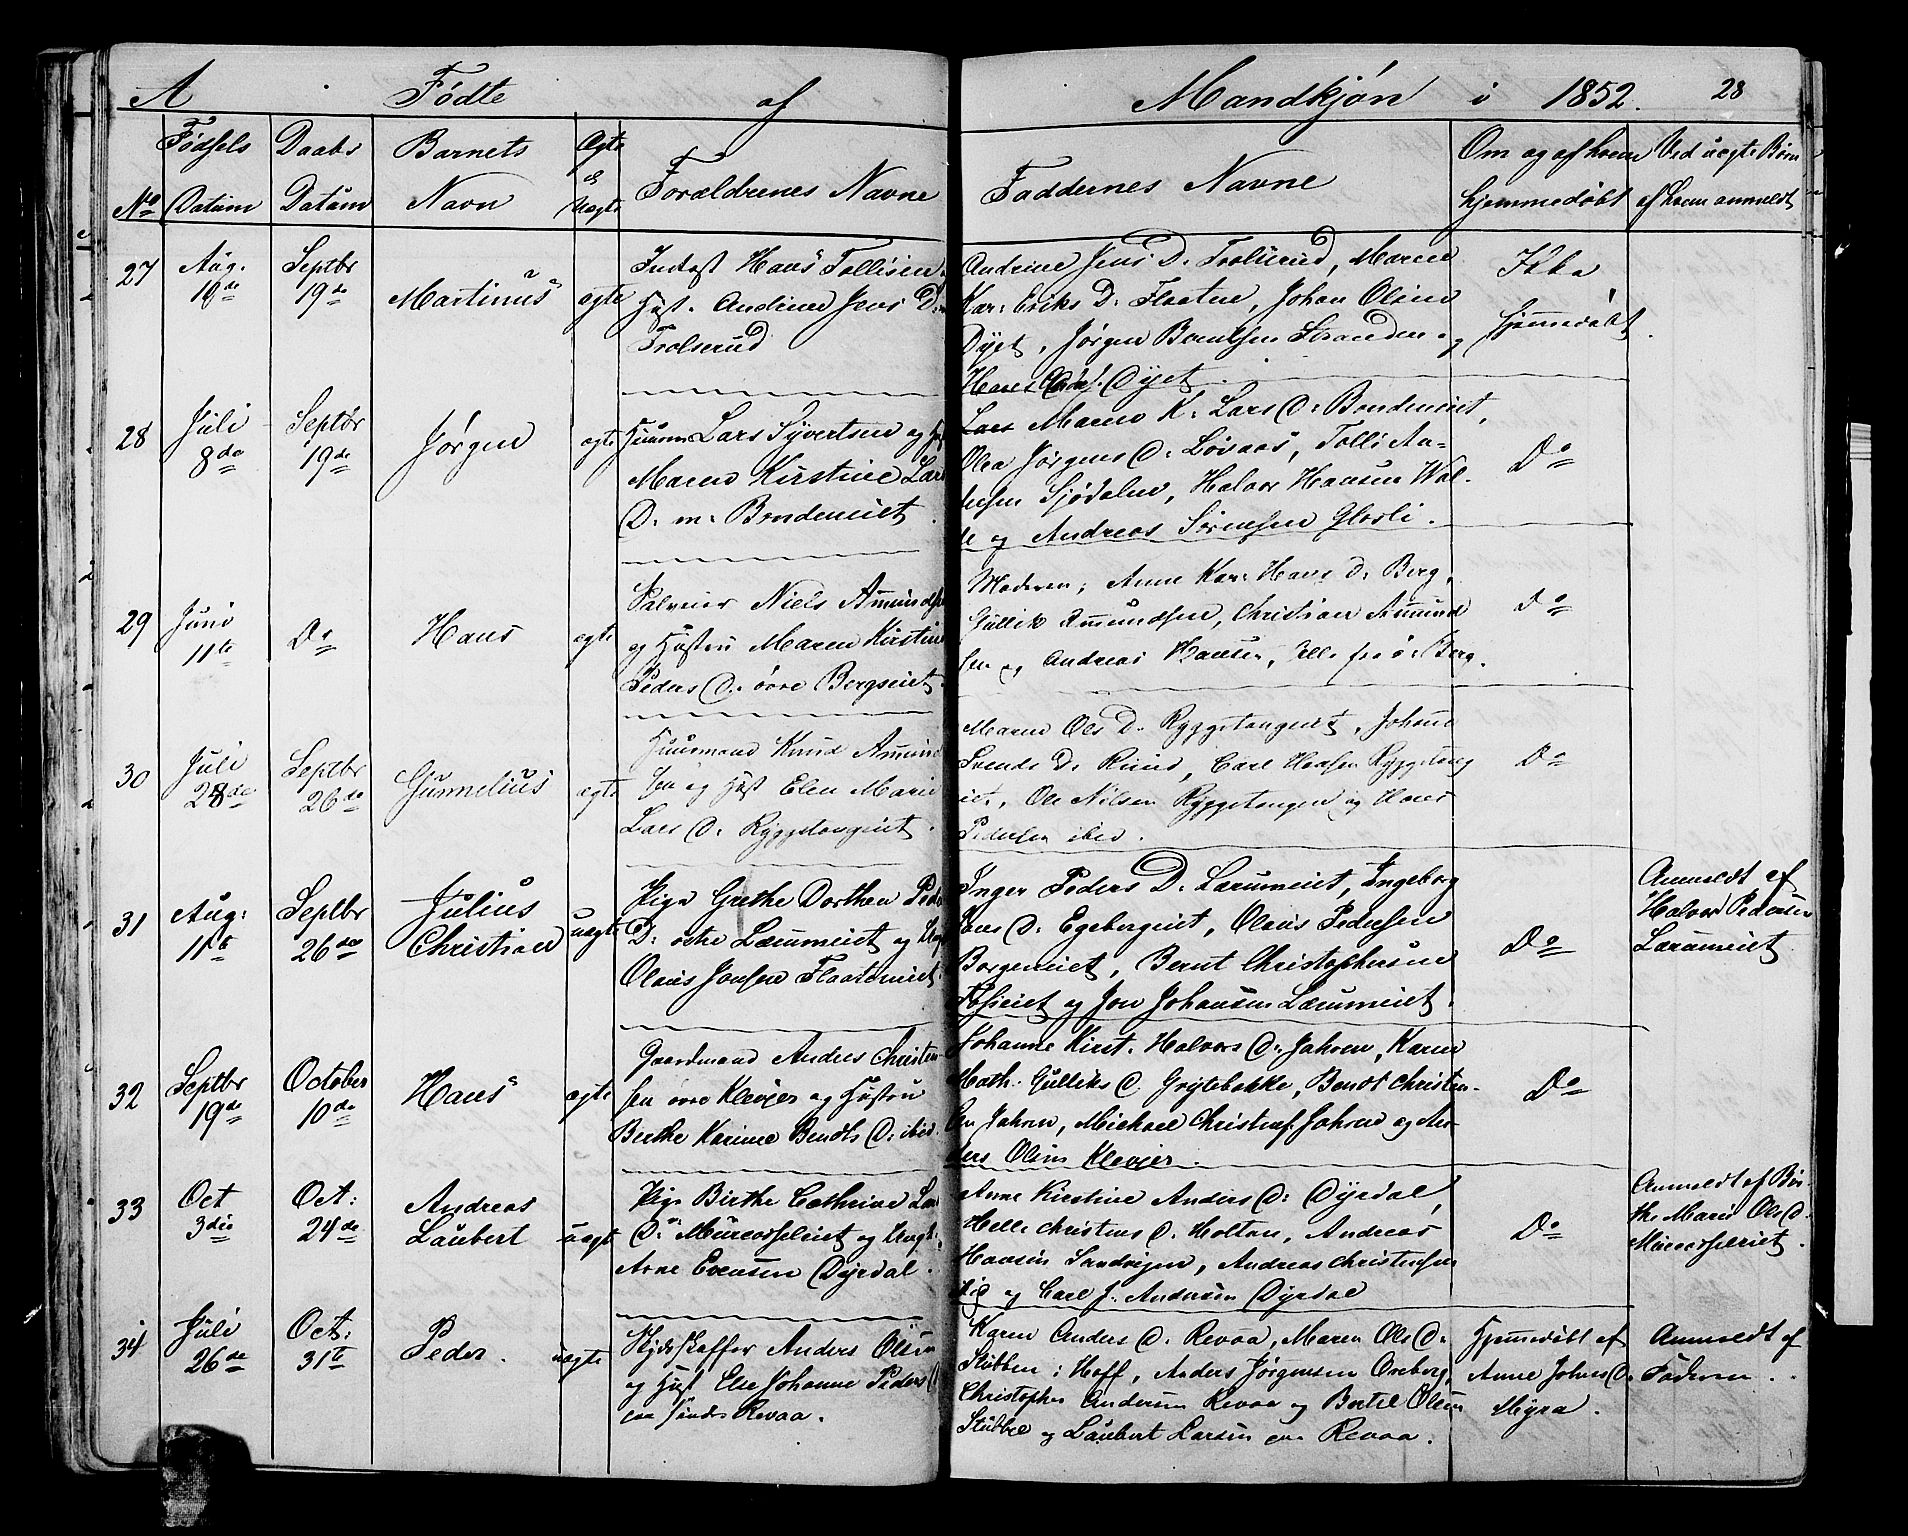 A Fødte af Mandkjøn i 1852. 28
No Fødsels Datum Daabs Datum Barnets Navn Ægte & Uægte Forældrenes Navne Faddernes Navne Om og af hvem hjemmedøbt Ved uægte Børn af hvem anmeldt
27 Aug. 19de Septbr 19de Martinus ægte
Inderst Hans Tollisen
Hust. Andrine Jens D:
Trolserud
Andrine Jens D. Trolserud, Maren
Kar: Eriks D: Flaaten, Johan Olsen
Dyet, Jørgen Berntsen Stranden og
Hans Dyet.
Ikke
hjemmedøbt.
28 Juli 8de Septbr 19de Jørgen ægte
Huusm Lars Syvertsen og
Maren Kirstine Lars
D. m: Bondeneiet.
Maren K: Lars D: Bondeneiet,
Olea Jørgens D: Løvaas, Tolli An-
dersen Sjødalen, Halvor Hansen Wal-
le og Andreas Sørensen Glosli.
Do
29 Juni 11te Do Hans ægte
Niels Amunds
og Hustru Maren Kirstine
Peders D. øvre Bergseiet.
Moderen, Anne Kar: Hans D: Berg,
Gullik Amundsen, Christian Amund
sen og Andreas Hansen, alle fra ø: Berg.
Do
30 Juli 28de Septbr 26de Gunnelius ægte
Huusmand Knud Amund
sen og Hust Elen Marie
Lars D: Ryggetangeiet.
Maren Ols D. Ryggetangeiet, Johanne
Svends D. Ruud, Carl Hansen Ryggetang
eiet, Ole Nilsen Ryggetangen og Hans
Pedersen ibid.
Do
31 Aug: 11te Septbr 26de Julius Christian uægte
Pige Grethe Dorthea Peders
D: østre Lærumeiet og Ungk
Olaus Jonsen Flaatemeiet
Inger Peders D. Lærumeiet, Ingeborg
Hans D. Egebergeiet, Olaus Pedersen
Borgeneiet, Bernt Christophersen
Fosseiet og Jon Johansen Lærumeiet.
Do
Anmeldt af
Halvor Pedersen
Lærumeiet
32 Septbr 19de October 10de Hans ægte
Gaardmand Anders Christen-
sen øvre Klevjer og Hustru
Berthe Karine Bendts D: ibid.
Johanne Kirst. Halvors D: Jahren, Karen
Math. Gulliks D. Grytebakke, Bendt Christen-
sen Jahren, Michael Christens: Jahren og An-
ders Olsen Klevjer.
Do
33 Oct 3die Oct: 24de Andreas Laubert uægt
Pige Birthe Cathrine Lars
D: Murcorseleiet og Ungk:
Arne Evensen Dyrdal.
Anne Kirstine Anders D: Dyrdal,
Helle Christens D. Holtan, Andreas
Hansen Sandvigen, Andreas Christensen
Vig og Carl J. Andersen Dyrdal
Do
Anmeldt af Bir-
the Marie Ols D.
34 Juli 26de Oct: 31te Peder. uægte
Skydsskaffer Anders Olsen
og Hust Else Johanne Peders D
paa søndre Revaa.
Karen Anders D. Revaa, Maren Ols D.
Stubben i Hoff, Anders Jørgensen Oreberg,
Christopher Andersen Revaa og Bertel Olsen
Stubben og Laubert Larsen paa Revaa.
Hjemmedøbt af
Anne Johns D.
Myra.
Anmeldt af
Faderen.